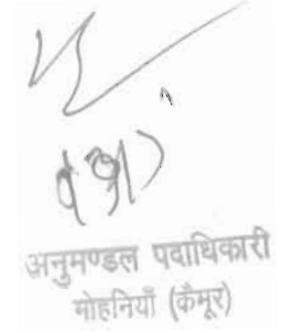 अनुमण्डल पदाधिकारी
मोहनियाँ (कैमूर)